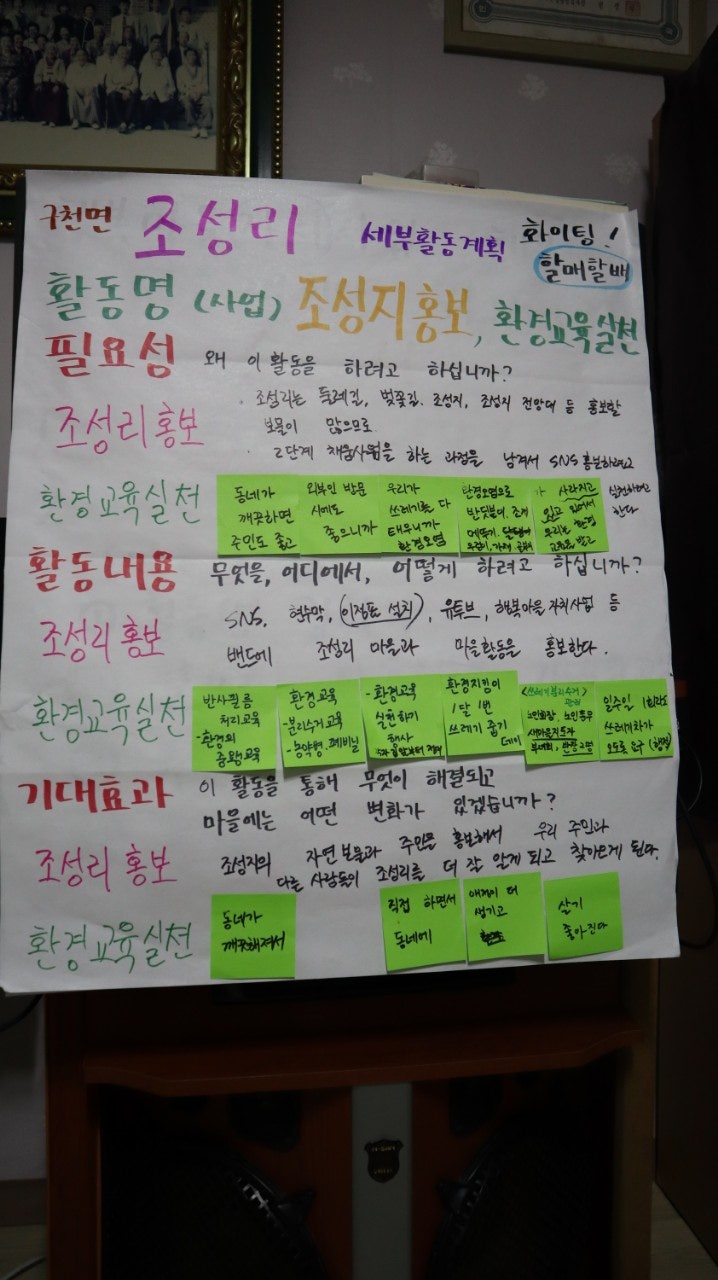 구천면 조성리 세부활동계획 화이팅!
할매할배
활동명 (사업) 조성지홍보, 환경교육실천
필요성 왜 이 활동을 하려고 하십니까?
조성리홍보 · 조성리는 둘레길, 벚꽃길. 조성지, 조성지 전망대 등 홍보할
보물이 많으므로
· 2단계 채움사업을 하는 과정을 남겨서 SNS홍보하려고
환경교육실천
동네가
깨끗하면
주민도 좋고
외부인 방문
시에도
좋으니까
우리가
쓰레기를 다
태우니까
환경오염
환경오염으로
반딧불이. 조개
메뚜기.
가 사라지고
있고 있어서
우리는 환경
교육을 받고
실천하려고
한다
활동내용 무엇을, 어디에서, 어떻게 하려고 하십니까?
조성리 홍보 SNS, 현수막, (이정표 설치), 유투브, 행복마을 자치사업 등
밴드에 조성리 마을과 마을활동을 홍보한다.
환경교육실천
반사필름
처리교육
-환경의
중요교육
환경교육
-분리수거교육
-농약병.폐비닐
-환경교육
실천하기
행사
환경지킴이
1달 1번
쓰레기 줍기
데이
<쓰레기분리수거>
관리
노인회장, 노인총무
새마을지도자
부녀회, 2명
일주일 1회라도
쓰레기차가
오도록 요구 (행정)
기대효과 이 활동을 통해 무엇이 해결되고
마을에는 어떤 변화가 있겠습니까?
조성리 홍보 조성지의 자연보물과 주민을 홍보해서 우리 주민과
다른 사람들이 조성리를 더 잘 알게 되고 찾아오게 된다.
환경교육실천
동네가
깨끗해져서
직접 하면서
동네에
애정이 더
생기고
살기
좋아진다